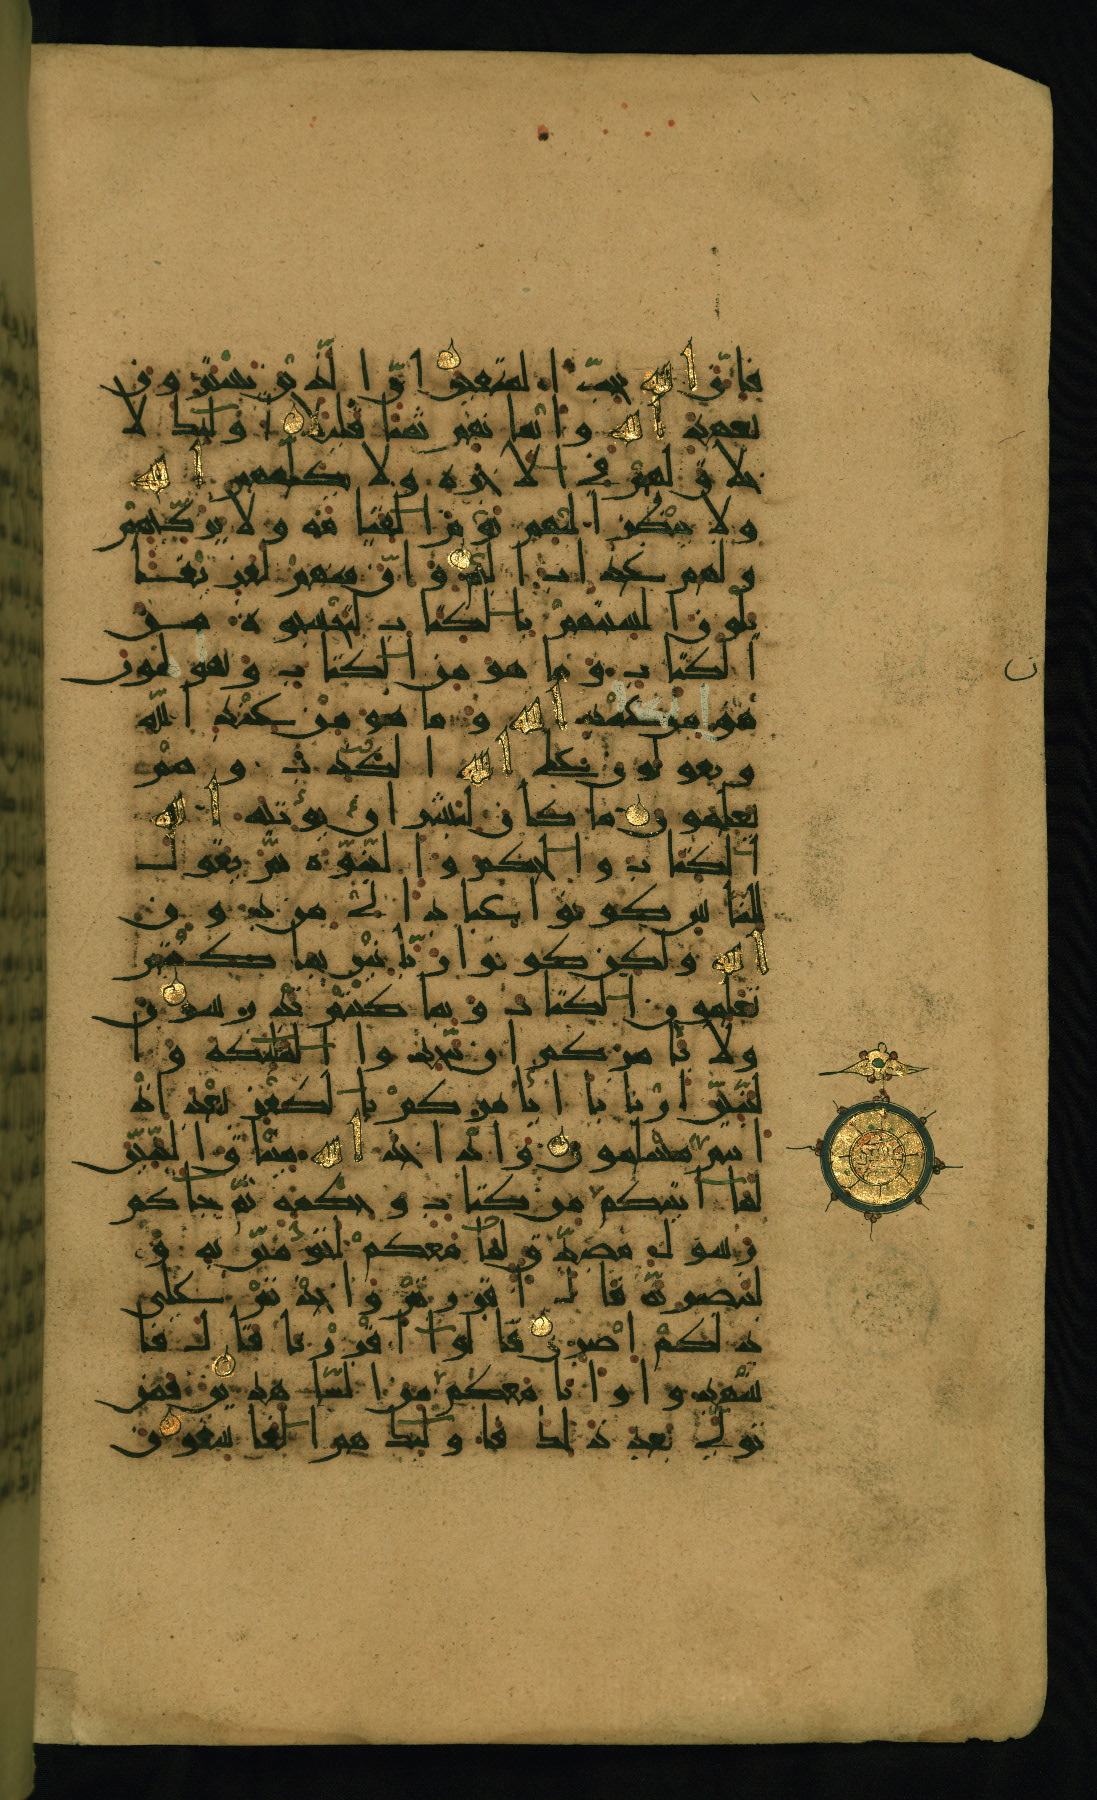 فان الله يحب المتقين ان الذين يشترون
بعهد الله وايمانهم ثمنا قليلا اولئك لا
خلاق لهم في الاخرة ولا يكلمهم الله
ولا ينظر اليهم يوم القيامة ولا يزكيهم
ولهم عذاب اليم وان منهم لفريقا
يلون السنتهم بالكتاب لتحسبوه من
الكتاب وما هو من الكتاب ويقولون
هو من عند الله وما هو من عند الله
ويقولون على الله الكذب وهم
يعلمون ما كان لبشر ان يؤتيه الله
الكتاب والحكم والنبوة ثم يقول
للناس كونوا عبادا لي من دون
الله ولكن كونوا ربانيين بما كنتم
تعلمون الكتاب وبما كنتم تدرسون
ولا يامركم ان تتخذوا الملئكة وا
لنبين اربابا ايامركم بالكفر بعد اذ
انتم مسلمون واذ اخذ الله ميثاق النبين
لما اتيتكم من كتاب وحكمة ثم جاكم
رسول مصدق لما معكم لتؤمنن به و
لتنصرنه قال اقررتم واخذتم على
ذلكم اصري قالوا اقررنا قال فا
شهدوا وانا معكم من الشاهدين فمن
تولى بعد ذلك فاولئك هم الفاسقون